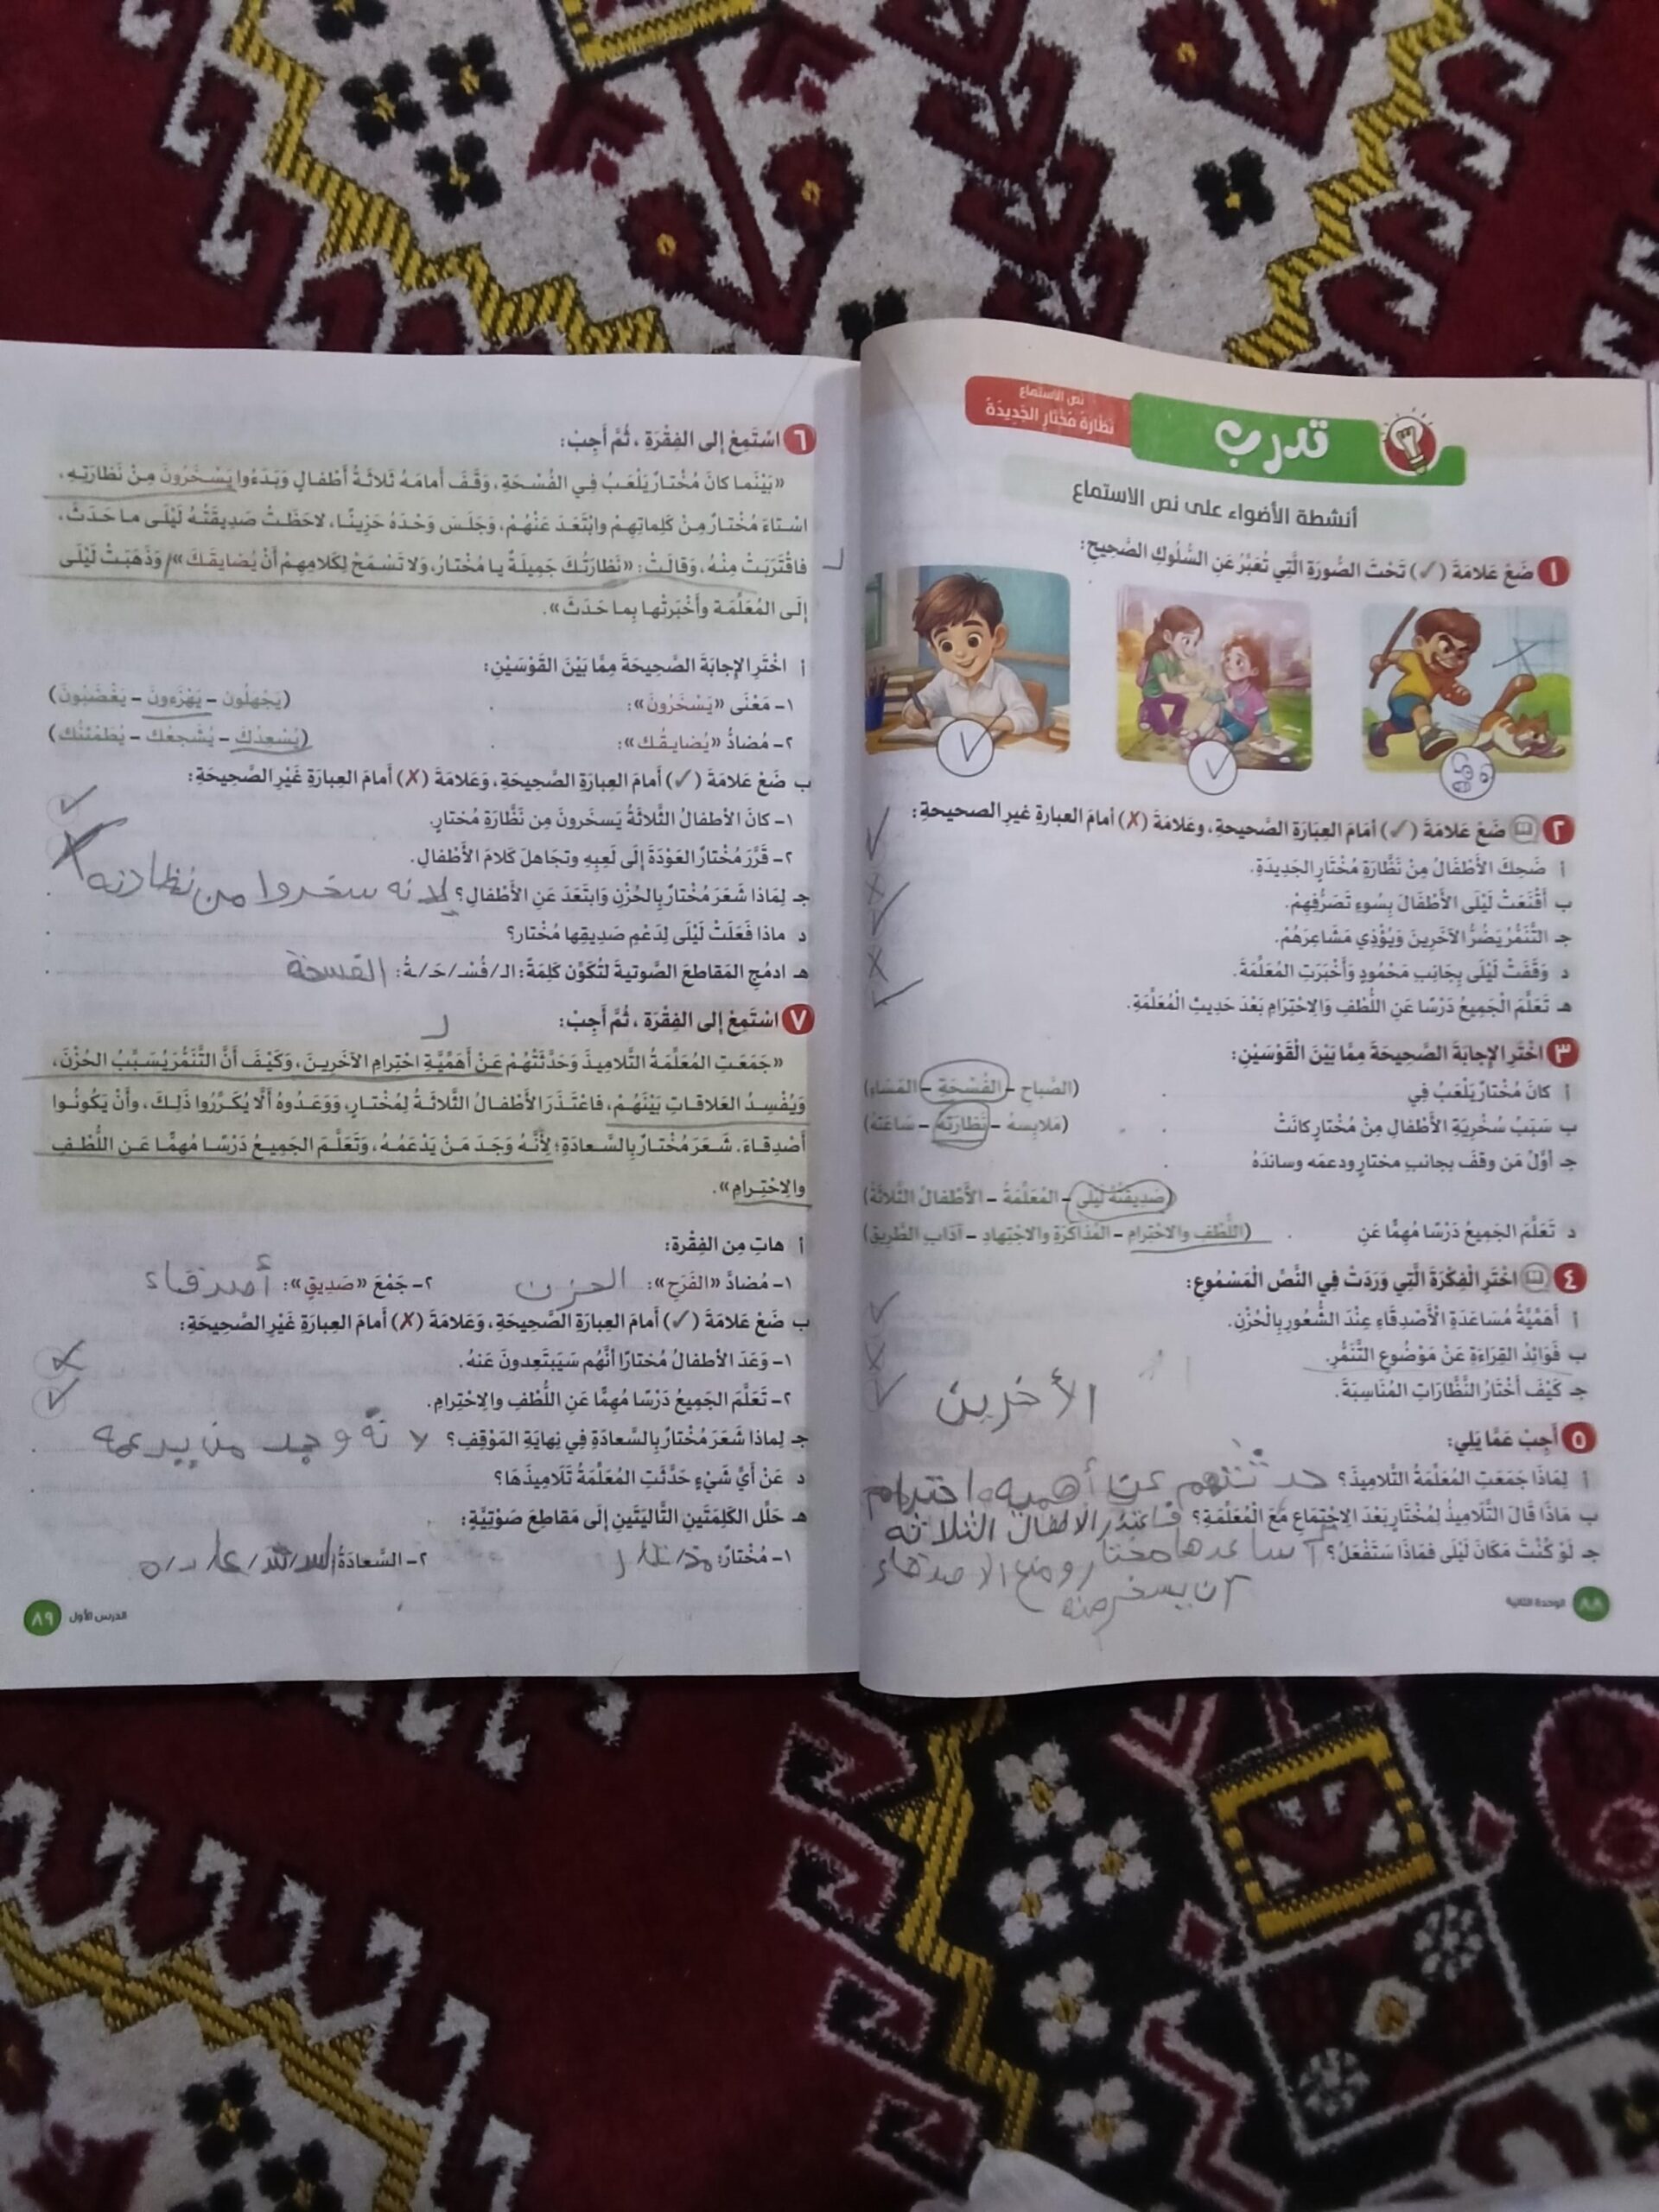 نص الاستماع
نَظَّارَةُ مُخْتَارٍ الجَدِيدَةُ
تدرب
أنشطة الأضواء على نص الاستماع
١ ضَعْ عَلامَةَ (✓) تَحْتَ الصُّورَةِ الَّتِي تُعَبِّرُ عَنِ السُّلُوكِ الصَّحِيحِ:
٢ ضَعْ عَلامَةَ (✓) أَمَامَ العِبَارَةِ الصَّحيحةِ، وعَلامَةَ (✗) أمامَ العبارةِ غيرِ الصحيحةِ:
أ ضَحِكَ الأَطْفَالُ مِنْ نَظَّارَةِ مُخْتَارٍ الجَدِيدَةِ.
ب أَقْنَعَتْ لَيْلَى الأَطْفَالَ بِسُوءِ تَصَرُّفِهِمْ.
جـ التَّنَمُّرُ يَضُرُّ الآخَرِينَ وَيُؤْذِي مَشَاعِرَهُمْ.
د وَقَفَتْ لَيْلَى بِجَانِبِ مَحْمُودٍ وَأَخْبَرَتِ المُعَلِّمَةَ.
هـ تَعَلَّمَ الْجَمِيعُ دَرْسًا عَنِ اللُّطْفِ وَالِاحْتِرَامِ بَعْدَ حَدِيثِ الْمُعَلِّمَةِ.
٣ اخْتَرِ الإِجابَةَ الصَّحِيحَةَ مِمَّا بَيْنَ الْقَوْسَيْنِ:
أ كانَ مُخْتارٌ يَلْعَبُ فِي . (الصَّباحِ - الفُسْحَةِ - المَسَاءِ)
ب سَبَبُ سُخْرِيَةِ الأَطْفالِ مِنْ مُخْتارٍ كانَتْ . (مَلابِسهُ - نَظَّارَتهُ - سَاعَتهُ)
جـ أوَّلُ مَن وقفَ بجانبِ مختارٍ ودعمَه وساندَهُ .
(صَدِيقَتُهُ لَيْلَى - المُعَلِّمَةُ - الأَطْفَالُ الثَّلاثَةُ)
د تَعَلَّمَ الجَمِيعُ دَرْسًا مُهِمًّا عَنِ . (اللُّطْفِ والاحْتِرامِ - المُذاكَرَةِ والاجْتِهادِ - آدَابِ الطَّرِيقِ)
٤ اخْتَرِ الْفِكْرَةَ الَّتِي وَرَدَتْ فِي النَّصِّ الْمَسْمُوعِ:
أ أَهَمِّيَّةُ مُسَاعَدَةِ الْأَصْدِقَاءِ عِنْدَ الشُّعُورِ بِالْحُزْنِ.
ب فَوَائِدُ القِرَاءَةِ عَنْ مَوْضُوعِ التَّنَمُّرِ.
جـ كَيْفَ أَخْتَارُ النَّظَّارَاتِ المُنَاسِبَةَ.
الأخرين
٥ أَجِبْ عَمَّا يَلِي:
أ لِمَاذَا جَمَعَتِ المُعَلِّمَةُ التَّلامِيذَ؟ حدثتهم عن أهميه احترام
ب مَاذَا قَالَ التَّلَامِيذُ لِمُخْتَارٍ بَعْدَ الِاجْتِمَاعِ مَعَ الْمُعَلِّمَةِ؟ فاعتذر الاطفال الثلاثه
جـ لَوْ كُنْتَ مَكَانَ لَيْلَى فَمَاذَا سَتَفْعَلُ؟ اساعدها مختار ومنع الاصدقاء
ان يسخر منه
٨٨ الوحدة الثانية
٦ اسْتَمِعْ إلى الفِقْرَةِ، ثُمَّ أَجِبْ:
«بَيْنَما كانَ مُخْتارٌ يَلْعَبُ فِي الفُسْحَةِ، وَقَفَ أَمامَهُ ثَلاثَةُ أَطْفالٍ وَبَدَءُوا يَسْخَرُونَ مِنْ نَظارَتِهِ،
اسْتاءَ مُخْتارٌ مِنْ كَلِماتِهِمْ وابْتَعَدَ عَنْهُمْ، وَجَلَسَ وَحْدَهُ حَزِينًا، لاحَظَتْ صَدِيقَتُهُ لَيْلَى ما حَدَثَ،
فاقْتَرَبَتْ مِنْهُ، وَقالَتْ: «نَظارَتُكَ جَمِيلَةٌ يا مُخْتارُ، وَلا تَسْمَحْ لِكَلامِهِمْ أَنْ يُضايِقَكَ» وَذَهَبَتْ لَيْلَى
إلَى المُعَلِّمَة وأَخْبَرَتْها بِما حَدَثَ».
أ اخْتَرِ الإِجابَةَ الصَّحِيحَةَ مِمَّا بَيْنَ القَوْسَيْنِ:
١- مَعْنَى «يَسْخَرُونَ»: . (يَجْهَلُون - يَهْزَءونَ - يَغْضَبُونَ)
٢- مُضادُّ «يُضايِقُكَ»: . (يُسْعِدُكَ - يُشَجِّعُكَ - يُطَمْئِنُكَ)
ب ضَعْ عَلامَةَ (✓) أَمامَ العِبارَةِ الصَّحِيحَةِ، وَعَلامَةَ (✗) أَمامَ العِبارَةِ غَيْرِ الصَّحِيحَةِ:
١- كانَ الأطفالُ الثَّلاثةُ يَسخَرونَ مِن نَظَّارَةِ مُختارٍ.
٢- قَرَّرَ مُخْتارٌ العَوْدَةَ إلَى لَعِبِهِ وتَجاهَلَ كَلامَ الأَطْفالِ.
جـ لِمَاذا شَعَرَ مُخْتارٌ بِالحُزْنِ وَابتَعَدَ عَنِ الأَطْفالِ؟ لانه سخروا من نظارته
د ماذا فَعَلَتْ لَيْلَى لِدَعْمِ صَدِيقِها مُخْتار؟
هـ ادمُجِ المَقاطعَ الصَّوتيةَ لتُكَوِّن كَلِمَةً: الـ/فُسْـ/حَـ/ـةُ: الفسحة
٧ اسْتَمِعْ إلى الفِقْرَةِ، ثُمَّ أَجِبْ:
«جَمَعَتِ المُعَلِّمَةُ التَّلامِيذَ وَحَدَّثَتْهُمْ عَنْ أَهَمِّيَّةِ احْتِرامِ الآخَرِينَ، وَكَيْفَ أَنَّ التَّنَمُّرَ يُسَبِّبُ الحُزْنَ،
وَيُفْسِدُ العَلاقاتِ بَيْنَهُمْ، فاعْتَذَرَ الأَطْفالُ الثَّلاثَةُ لِمُخْتارٍ، وَوَعَدُوهُ أَلَّا يُكَرِّرُوا ذَلِكَ، وأَنْ يَكُونُوا
أَصْدِقاءَ. شَعَرَ مُخْتارٌ بِالسَّعادَةِ؛ لِأَنَّهُ وَجَدَ مَنْ يَدْعَمُهُ، وَتَعَلَّمَ الجَمِيعُ دَرْسًا مُهِمًّا عَنِ اللُّطْفِ
والِاحْتِرامِ».
أ هاتِ مِن الفِقْرة:
١- مُضادَّ «الفَرَحِ»: الحزن ٢- جَمْعَ «صَدِيقٍ»: أصدقاء
ب ضَعْ عَلامَةَ (✓) أَمامَ العِبارَةِ الصَّحِيحَةِ، وَعَلامَةَ (✗) أَمامَ العِبارَةِ غَيْرِ الصَّحِيحَةِ:
١- وَعَدَ الأطفالُ مُختارًا أنَّهُم سَيَبتَعِدونَ عَنهُ.
٢- تَعَلَّمَ الجَمِيعُ دَرْسًا مُهِمًّا عَنِ اللُّطْفِ والِاحْتِرامِ.
جـ لِماذا شَعَرَ مُخْتارٌ بِالسَّعادَةِ فِي نِهايَةِ المَوْقِفِ؟ لانه وجد من يدعمه
د عَنْ أَيِّ شَيْءٍ حَدَّثَتِ المُعَلِّمَةُ تَلَامِيذَهَا؟
هـ حَلِّلِ الكَلِمَتَينِ التَّالِيَتَينِ إلى مَقاطِعَ صَوْتِيَّةٍ:
١- مُخْتارٌ: ٢- السَّعادَةُ:
٨٩ الدرس الأول